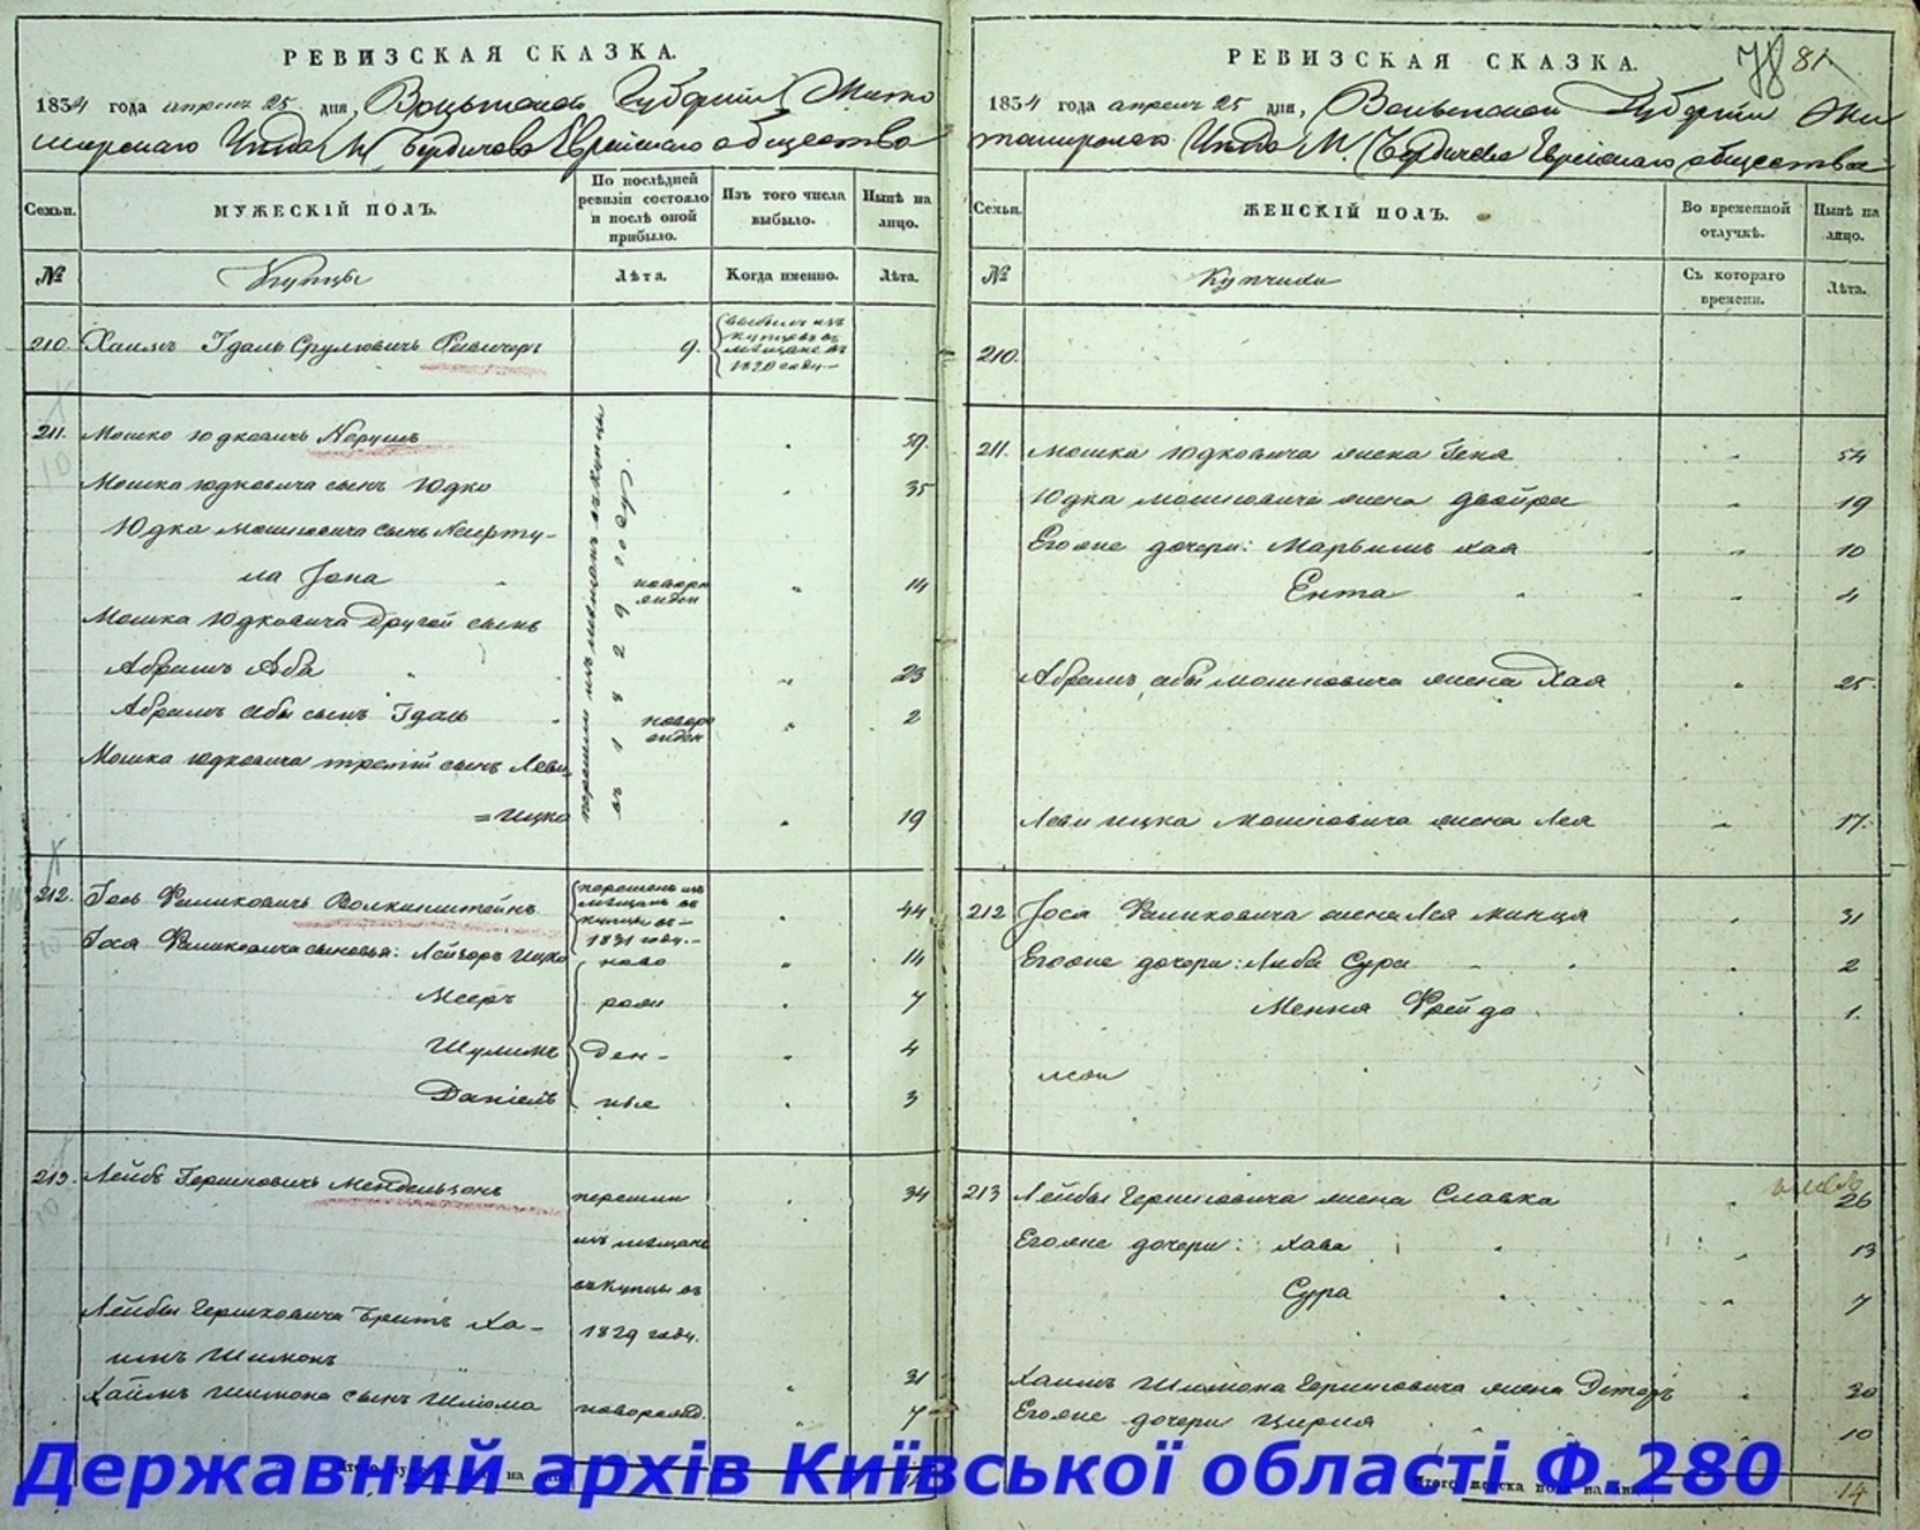 РЕВИЗСКАЯ СКАЗКА.
1834 года апреля 25 дня, Волынской Губернiи Жито
мирскаго Уѣзда М. Бердичева Еврейскаго общества
Семьи.
МУЖЕСКІЙ ПОЛЪ.
По послѣдней ревизіи состояло и послѣ оной прибыло.
Изъ того числа выбыло.
Нынѣ на лицо.
№
Купцы
Лѣта.
Когда именно.
Лѣта.
210. Хаимъ Iдаль Срулювичь 9. выбылъ изъ
купцовъ въ
мѣщане въ
1830 году.
211. Мошко Юдковичь 59.
Мошка Юдковича сынъ Юдко 35
Юдка Мошковича сынъ
ла Iона новоро
жден 14
Мошка Юдковича другой сынъ
Абрамъ Аба 23
Абрамъ Абы сынъ Iдаль новоро
жден 2
Мошка Юдковича третiй сынъ Леви
= Ицко 19
перешли изъ мѣщанъ въ купцы
въ 1829 году.
212. Iось Фаликовичь Волкинштейнъ перешелъ изъ
мѣщанъ въ
купцы въ
1831 году. 44
Iося Фаликовича сыновья: Лейзоръ Ицко ново 14
Мееръ рож 7
Шулимъ ден- 4
Данiель ные 3
213. Лейбъ Гершковичь Мендельзонъ перешли 34
изъ мѣщанъ
въ купцы въ
Лейбы Гершковича братъ Ха-
1829 году.
имъ Шимонъ 31
Хаимъ Шимона сынъ Шлiома новорожд. 7
РЕВИЗСКАЯ СКАЗКА.
78 81
1834 года апреля 25 дня, Волынской Губернiи Жи
томирскаго Уѣзда М. Бердичева Еврейскаго общества
Семьи.
ЖЕНСКІЙ ПОЛЪ.
Во временной отлучкѣ.
Нынѣ на лицо.
№
Купчихи
Съ котораго времени.
Лѣта.
210.
211. Мошка Юдковича жена Геня 54
Юдка Мошковича жена Двойра 19
Егоже дочери: Марьямъ Хая 10
Ента 4
Абрамъ Абы Мошковича жена Хая 25
Леви Ицка Мошковича жена Лея 17.
212 Iося Фаликовича жена Лея Минця 31
Егоже дочери: Либа Сура 2
Мення Фрейда 1.
213 Лейбы Гершковича жена Славка 26
Егоже дочери: Хава 13
Сура 7
Хаимъ Шимона Гершковича жена 30
Егоже дочери Цирля 10
Итого женска пола на лицо 14
Державний архів Київської області Ф.280